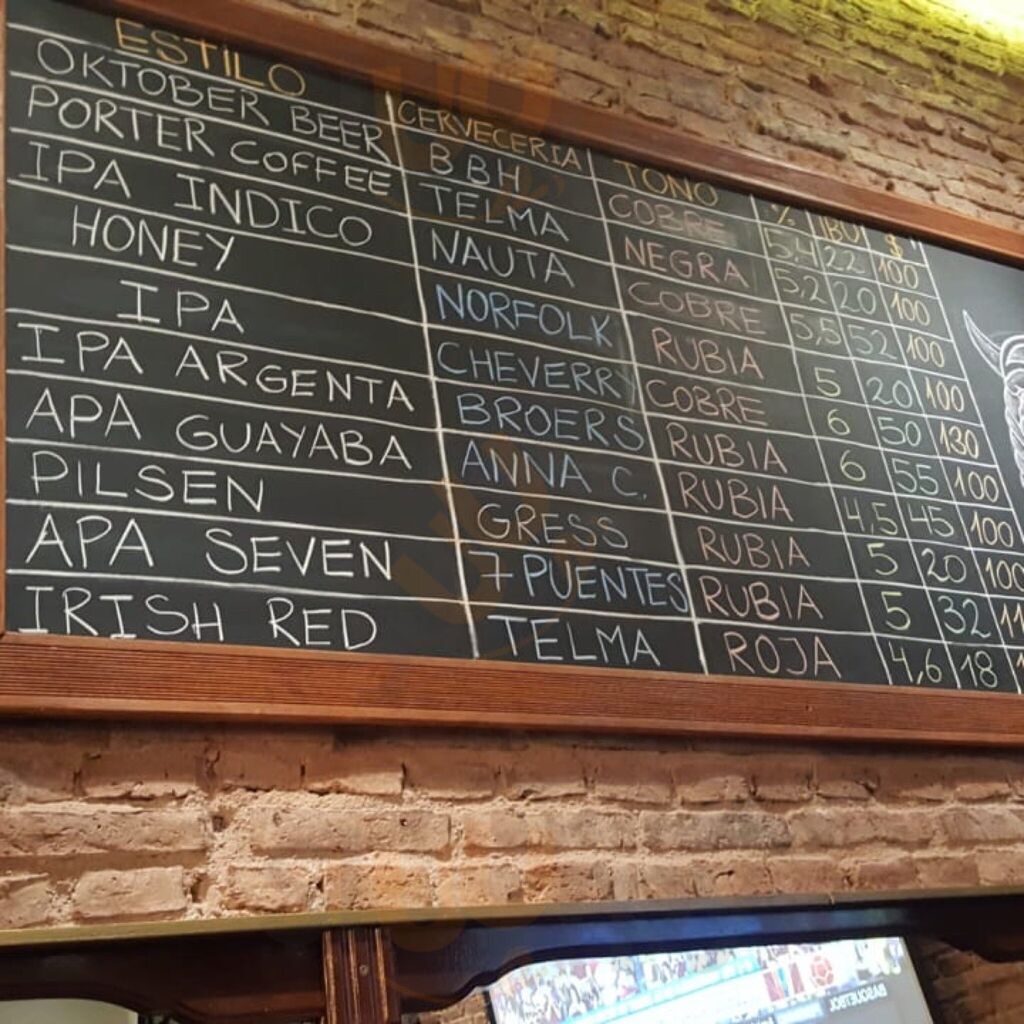 ESTILO CERVECERIA TONO % IBU $
OKTOBER BEER BBH COBRE 5,4 22 100
PORTER COFFEE TELMA NEGRA 5,2 20 100
IPA INDICO NAUTA COBRE 5,5 52 100
HONEY NORFOLK RUBIA 5 20 100
IPA CHEVERRY COBRE 6 50 130
IPA ARGENTA BROERS RUBIA 6 55 100
APA GUAYABA ANNA C. RUBIA 4,5 45 100
PILSEN GRESS RUBIA 5 20 100
APA SEVEN 7 PUENTES RUBIA 5 32
IRISH RED TELMA ROJA 4,6 18
BASQUETBOL